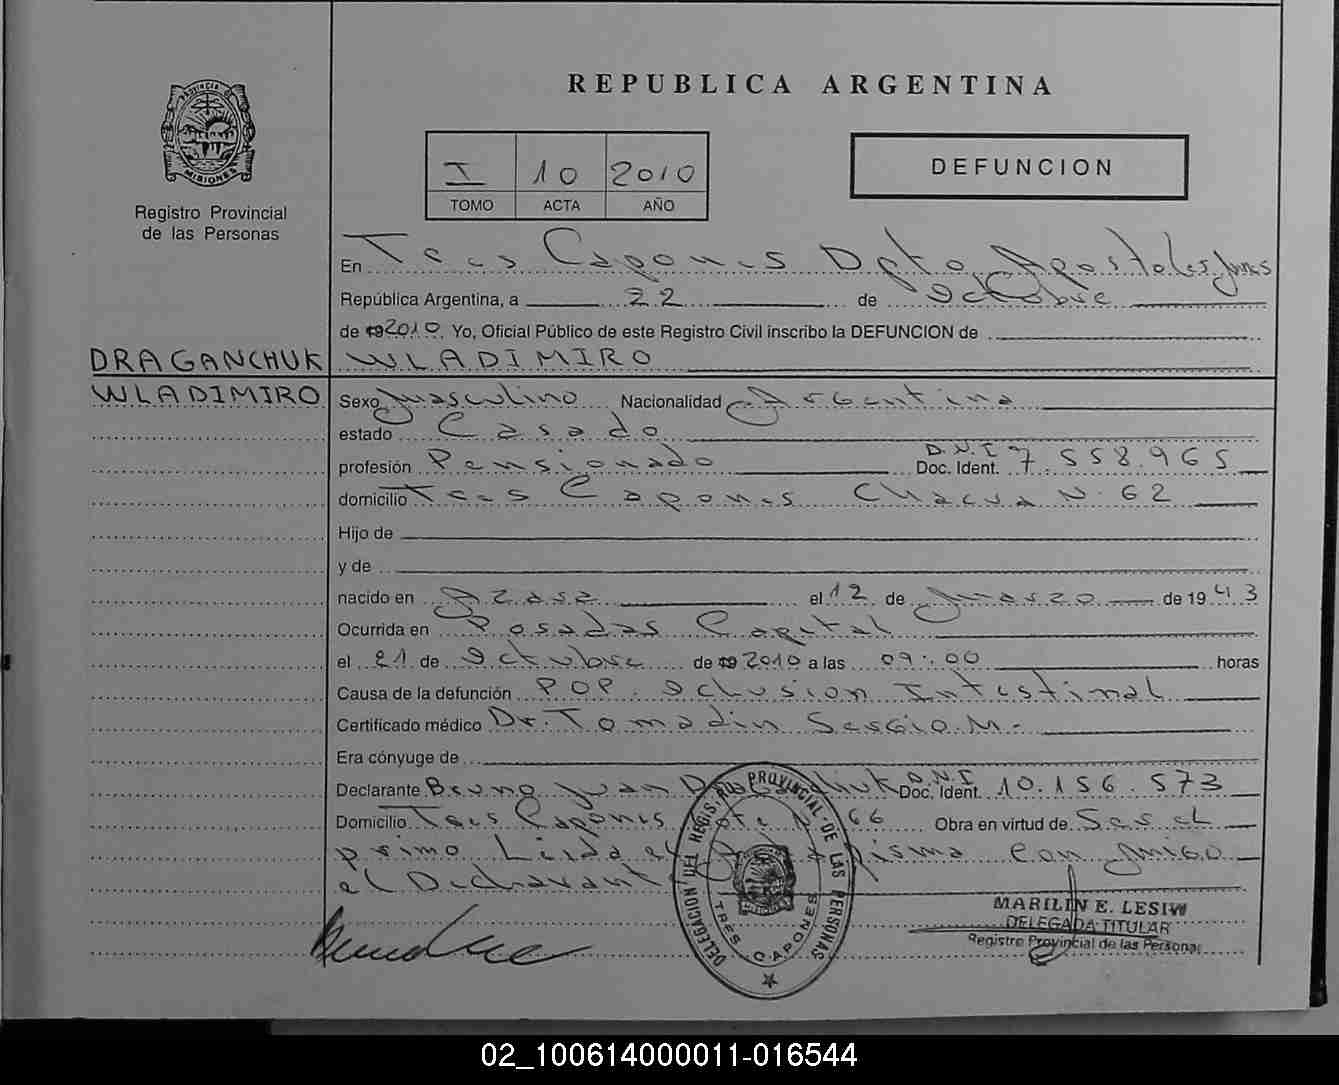 PROVINCIA DE
MISIONES
Registro Provincial
de las Personas
REPUBLICA ARGENTINA
I 10 2010
TOMO ACTA AÑO
DEFUNCION
En Tres Capones Dpto Apostoles, Mnes
República Argentina, a 22 de Octubre
de 19 2010 Yo, Oficial Público de este Registro Civil inscribo la DEFUNCION de
DRAGANCHUK WLADIMIRO
WLADIMIRO
Sexo Masculino Nacionalidad Argentina
estado Casado
profesión Pensionado D.N.I Doc. Ident. 7.558.965
domicilio Tres Capones Chacra N. 62
Hijo de
y de
nacido en Azara el 12 de Marzo de 1943
Ocurrida en Posadas Capital
el 21 de Octubre de 19 2010 a las 09:00 horas
Causa de la defunción P.O.P. Oclusion Intestinal
Certificado médico Dr. Tomadin Sergio M.-
Era cónyuge de
Declarante Bruno Juan Draganchuk D.N.I Doc. Ident. 10.156.573
Domicilio Tres Capones Lote 66 Obra en virtud de Ser el
primo Leida el Acta firma con migo
el Declarant
DELEGACION DEL REGIST. PROVINCIAL DE LAS PERSONAS
TRES CAPONES
MARILIN E. LESIW
DELEGADA TITULAR
Registro Provincial de las Personas
02_100614000011-016544